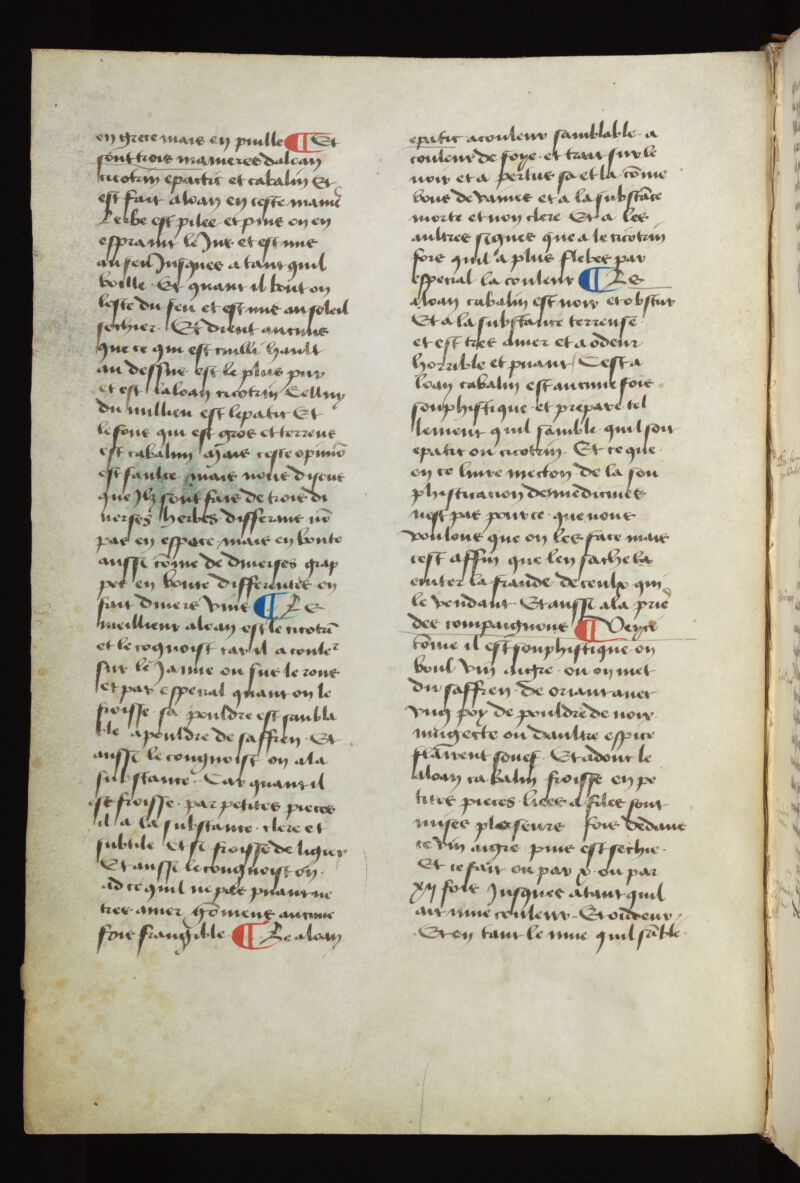 en grece mais en puille ¶ Et
sont trois manieres daloan
cicotrin epactic et cabalin Et
est fait aloan en ceste manie
Lerbe est pilee et puis on en
espraint le Jus et est mis
au feu Jusques a tant quil
boille Et quant il bout on
loste du feu et est mis au soleil
sechier Et dient aucuns
que ce qui est cuilli hault
au dessus est le plus pur
et est laloan cicotrin Celluy
du millieu est lepatic Et
le fons qui est gros et terreus
est cabalin Mais ceste opiniō
est faulce mais nous disons
que Ilz sont fais de trois di
uerses herbes differans nō
pas en espece mais en bonte
aussi cōme de diuerses grap
pes en bonte differentes on
fait diuers vins ¶ Le
meillieur aloan est le cicotrī
et le cognoist car il a couler
sur le Jaune ou sur le rous
et par especial quant on le
froisse sa pouldre est sambla
ble a pouldre de saffren Et
aussi le congnoist on a la
substance Car quant il
est froisse par petites pieces
il a la substance clere et
subtile et se froisse de ligier
Et aussi le congnoist on
ad ce quil nepas puant ne
tres amer Gōmeus aucune
fois frangible ¶ Le aloan
epatic a couleur samblable a
couleur de foye et trait sur le
noir et a pertus sa et la cōme
bous de vaines et a la substāce
morte et non clere Et a les
aultres signes que a le cicotrin
fors quil a plus flebes par
especial la couleur ¶ Le
aloan cabalin est noir et obscur
Et a la substance terreuse
et est tres amer et a odeur
horrible et puant Cest a
loan cabalin est aucune fois
souphistique et prepare tel
lement quil samble quil soit
epatic ou cicotrin Et ce que
en ce liure metton de la sou
phistication de medicines
nest pas pour ce que nous
voulons que on les face mais
cest affin que len sache la
euiter la fraude de ceulx qui
le vendant Et aussi a la prie
des compaignons ¶ Veyci
cōme il est souphistique on
boul vin aigre ou on met
du saffren de oriant auec
vng poy de pouldre de nois
mugecte ou daultre espice
flairent souef Et adont le
aloan cabalin froisse en pe
tites pieces liees a files sont
mises pluseurs fois dedans
ce vin aigre puis est sechie
Et ce fait on par x ou par
xij fois Jusques atant quil
ait mue couleur Et oudeur
Et en tant le mue quil sāble